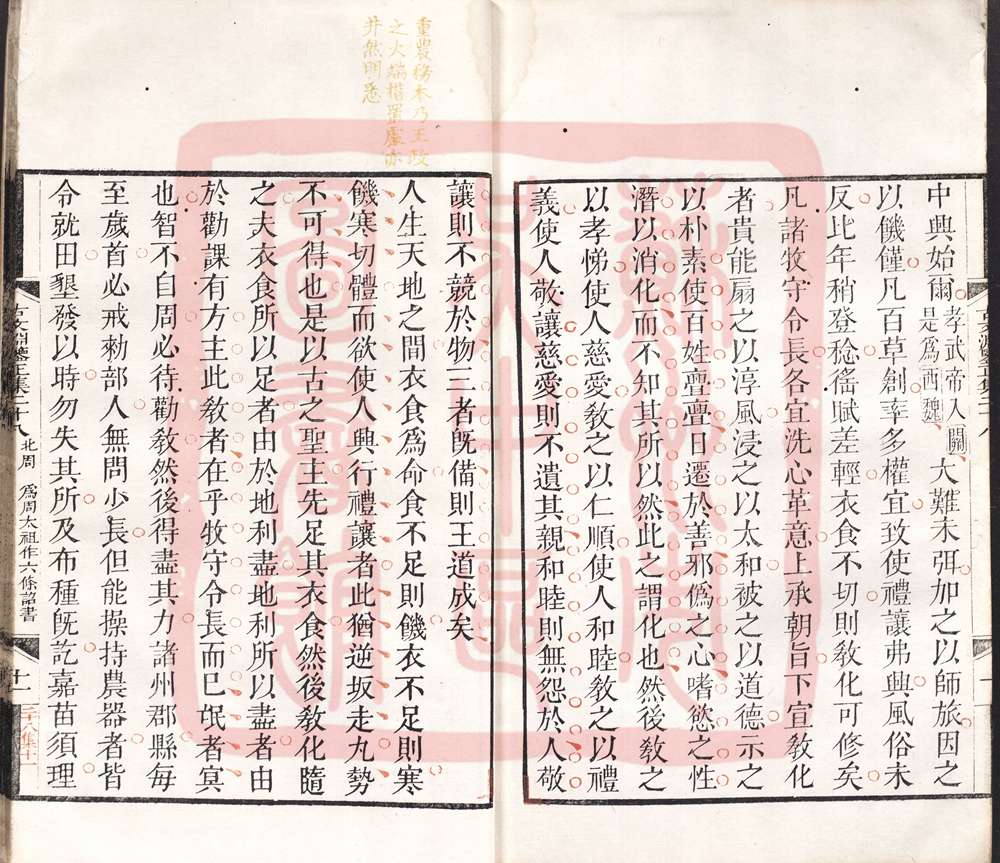 中興始爾孝武帝入關是爲西魏大難未弭加之以師旅因之
以饑僅凡百草創率多權宜致使禮讓弗興風俗未
反比年稍登稔徭賦差輕衣食不切則教化可修矣
凡諸牧守令長各宜洗心革意上承朝旨下宣教化
者貴能扇之以淳風浸之以太和被之以道德示之
以朴素使百姓亹亹日遷於善邪僞之心嗜慾之性
潛以消化而不知其所以然此之謂化也然後教之
以孝悌使人慈愛教之以仁順使人和睦教之以禮
義使人敬讓慈愛則不遺其親和睦則無怨於人敬
讓則不競於物三者旣備則王道成矣
人生天地之間衣食爲命食不足則饑衣不足則寒
饑寒切體而欲使人興行禮讓者此猶逆坂走丸勢
不可得也是以古之聖主先足其衣食然後教化隨
之夫衣食所以足者由於地利盡地利所以盡者由
於勸課有方主此教者在乎牧守令長而已氓者冥
也智不自周必待勸教然後得盡其力諸州郡縣每
至歲首必戒勑部人無問少長但能操持農器者皆
令就田墾發以時勿失其所及布種旣訖嘉苗須理
重農務本乃王政
之大端措置處亦
井然明悉
古文淵鑒正集二十八 北周 爲周太祖作六條詔書 十一